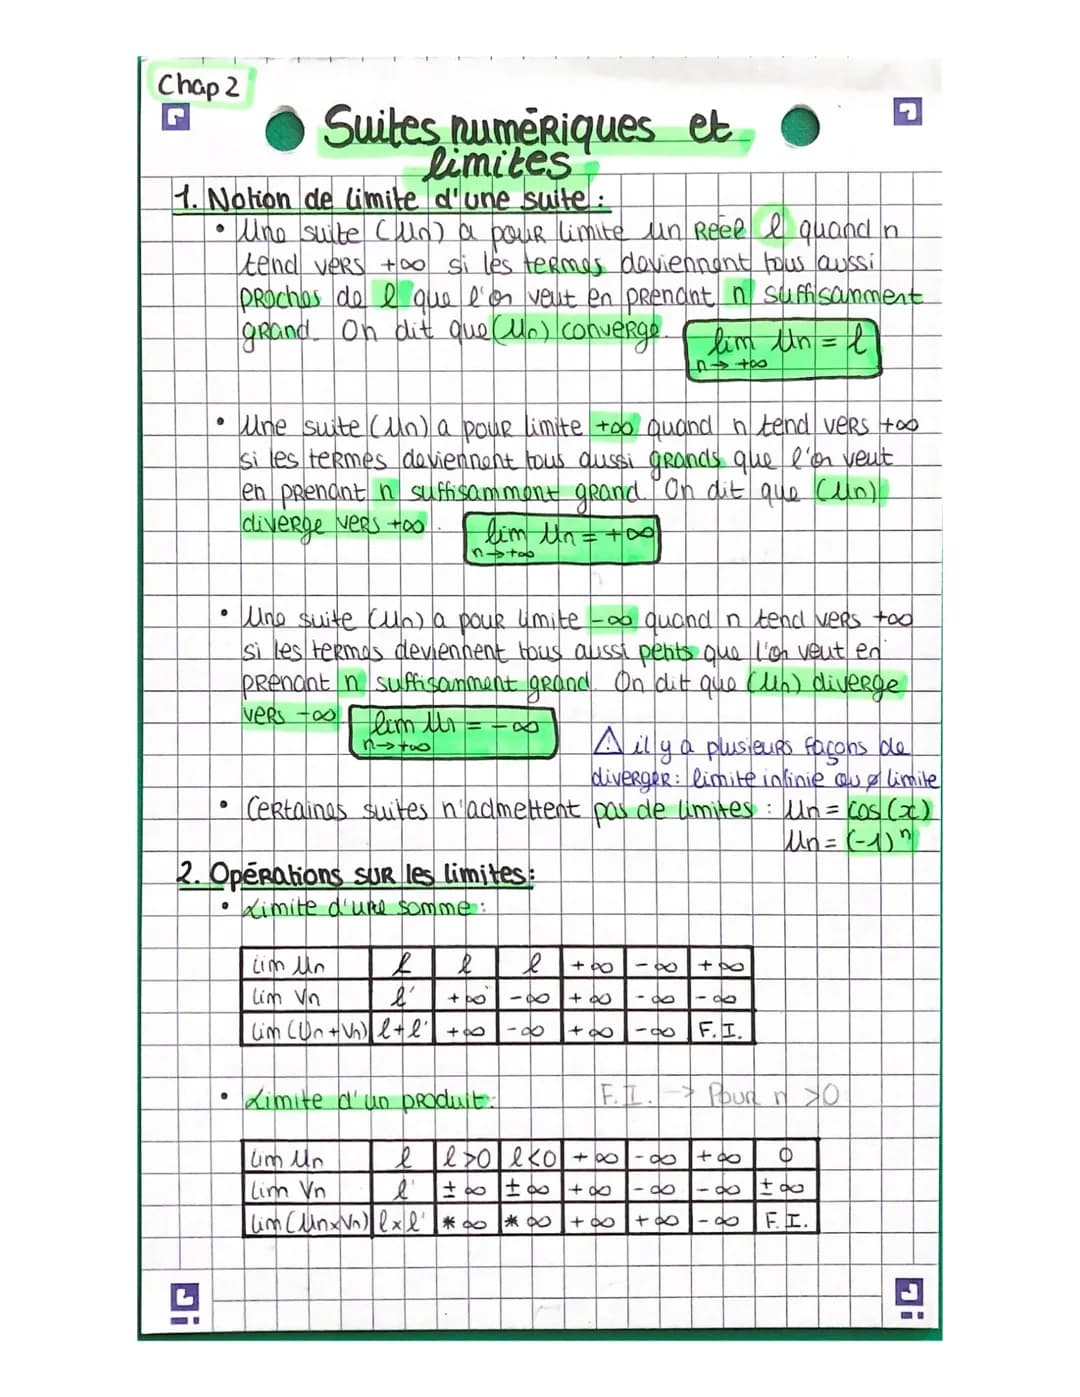 Chap 2
Suites numériques et
limites
1. Notion de limite d'une suite :
• Une suite (Un) a pour limite un réel l quand n
tend vers +∞ si les termes deviennent tous aussi
proches de l que l'on veut en prenant n suffisamment
grand. On dit que (Un) converge.
lim Un = l
n→+∞
• Une suite (Un) a pour limite +∞ quand n tend vers +∞
si les termes deviennent tous aussi grands que l'on veut
en prenant n suffisamment grand. On dit que (Un)
diverge vers +∞.
lim Un = +∞
n→+∞
• Une suite (Un) a pour limite -∞ quand n tend vers +∞
si les termes deviennent tous aussi petits que l'on veut en
prenant n suffisamment grand. On dit que (Un) diverge
vers -∞
lim Un = -∞
n→+∞
⚠ il y a plusieurs façons de
diverger : limite infinie ou ø limite
• Certaines suites n'admettent pas de limites : Un = cos(x)
Un = (-1)ⁿ
2. Opérations sur les limites :
• Limite d'une somme :
lim Un l l l +∞ -∞ +∞
lim Vn l' +∞ -∞ +∞ -∞ -∞
lim (Un+Vn) l+l' +∞ -∞ +∞ -∞ F.I.
• Limite d'un produit : F.I. → Pour n >0
lim Un l l>0 l<0 +∞ -∞ +∞ 0
lim Vn l' ±∞ ±∞ +∞ -∞ -∞ ±∞
lim (Un×Vn) l×l' *∞ *∞ +∞ +∞ -∞ F.I.